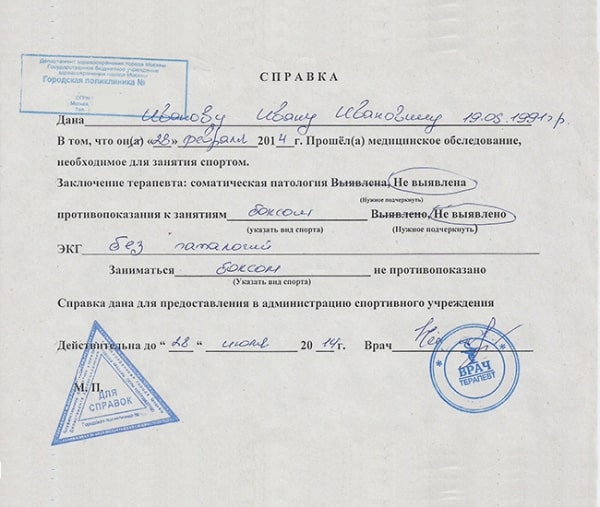 Департамент здравоохранения города Москвы
Государственное бюджетное учреждение
здравоохранения города Москвы
Городская поликлиника №
ОГРН
Москва
Тел.
СПРАВКА
Дана Иванову Ивану Ивановичу 19.05.1991г.р.
В том, что он(а) «28» февраля 2014 г. Прошёл(а) медицинское обследование,
необходимое для занятия спортом.
Заключение терапевта: соматическая патология Выявлена, Не выявлена
(Нужное подчеркнуть)
противопоказания к занятиям боксом Выявлено, Не выявлено
(указать вид спорта) (Нужное подчеркнуть)
ЭКГ без патологий
Заниматься боксом не противопоказано
(Указать вид спорта)
Справка дана для предоставления в администрацию спортивного учреждения
Действительна до “ 28 “ июля 20 14г. Врач
М. П.
ДЛЯ
СПРАВОК
Городская поликлиника №
ВРАЧ
ТЕРАПЕВТ